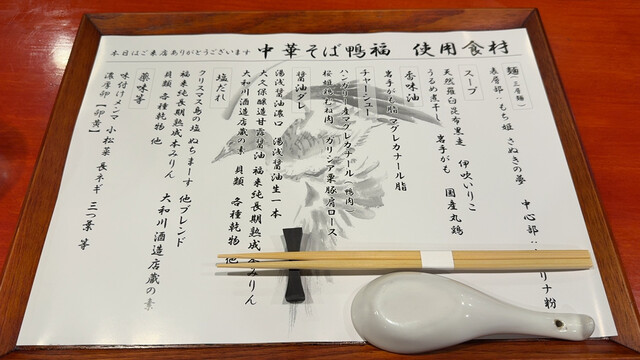 本日はご来店ありがとうございます
中華そば鴨福 使用食材
麺(三層麺)
表層部:もち姫 さぬきの夢 中心部: リナ粉
スープ
天然羅臼昆布黒走 伊吹いりこ
うるめ煮干し 岩手がも 国産丸鶏
香味油
岩手がも脂 マグレカナール脂
チャーシュー
ハンガリー産マグレカナール(鴨肉)
桜姫鶏むね肉 ガリシア栗豚肩ロース
醤油ダレ
湯浅醤油濃口 湯浅醤油生一本
大久保醸造甘露醤油 福来純長期熟成本みりん
大和川酒造店蔵の素 貝類 各種乾物 他
塩だれ
クリスマス島の塩 ぬちまーす 他ブレンド
福来純長期熟成本みりん 大和川酒造店蔵の素
貝類 各種乾物 他
薬味等
味付けメンマ 小松菜 長ネギ 三つ葉 等
濃厚卵【卵黄】